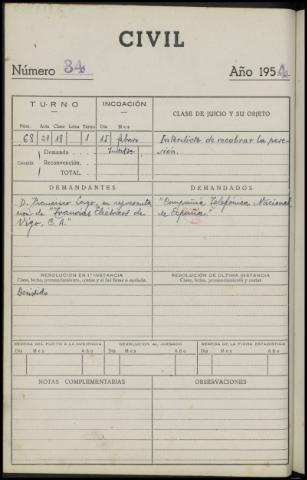 CIVIL
Número 34 Año 1954
TURNO INCOACIÓN CLASE DE JUICIO Y SU OBJETO
Núm. Acta Clase Letra Turno Día Mes
68 21 18 1 15 febrero Interdicto de recobrar la pose-
sión.
Cuantía Demanda
Reconvención.
TOTAL
DEMANDANTES DEMANDADOS
D. Francisco Lago, en representa- "Compañía Telefónica Nacional
ción de "Tranvías Eléctricos de de España."
Vigo, C.A."
RESOLUCIÓN EN 1.ª INSTANCIA RESOLUCIÓN DE ÚLTIMA INSTANCIA
Clase, fecha, pronunciamiento, costas y si fué firme o apelada. Clase, fecha, pronunciamiento y costas.
Desistido
REMESA DEL PLEITO A LA AUDIENCIA DEVOLUCIÓN AL JUZGADO REMESA DE LA FICHA ESTADÍSTICA
Día Mes Año Día Mes Año Día Mes Año
NOTAS COMPLEMENTARIAS OBSERVACIONES